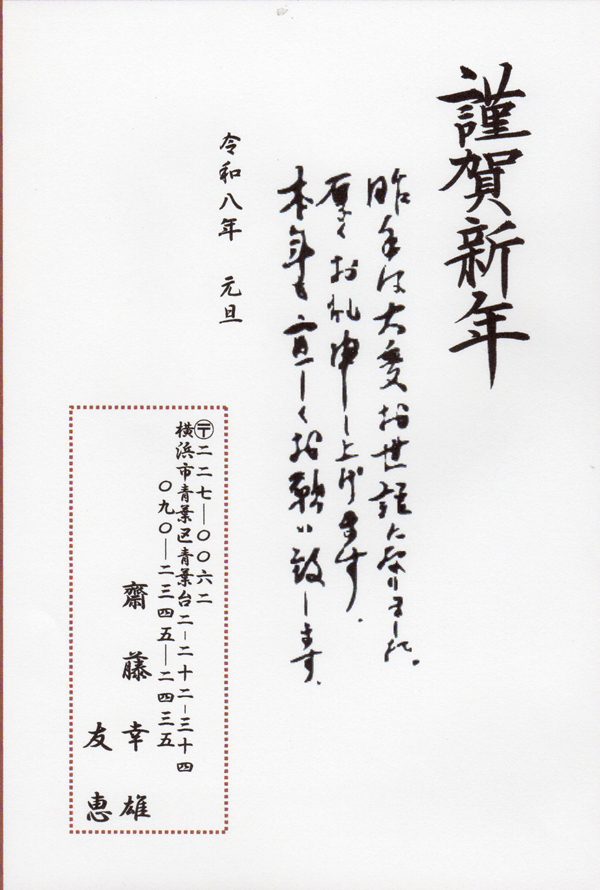 謹賀新年
昨年は大変お世話になりました。
厚くお礼申し上げます。
本年も宜しくお願い致します。
令和八年 元旦
〒二二七―〇〇六二
横浜市青葉区青葉台二－二十二－三十四
〇九〇―二三四五―二四三五
齋藤幸雄
友恵